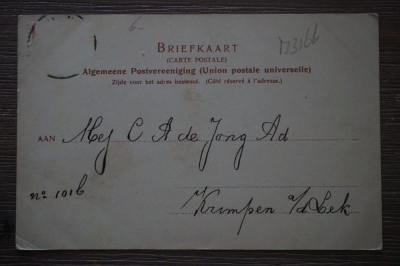 6-
M3166
BRIEFKAART
(CARTE POSTALE)
Algemeene Postvereeniging (Union postale universelle)
Zijde voor het adres bestemd. (Côté réservé à l'adresse.)
AAN Mej C A de Jong Ad
no 1016
Krimpen a/d Lek